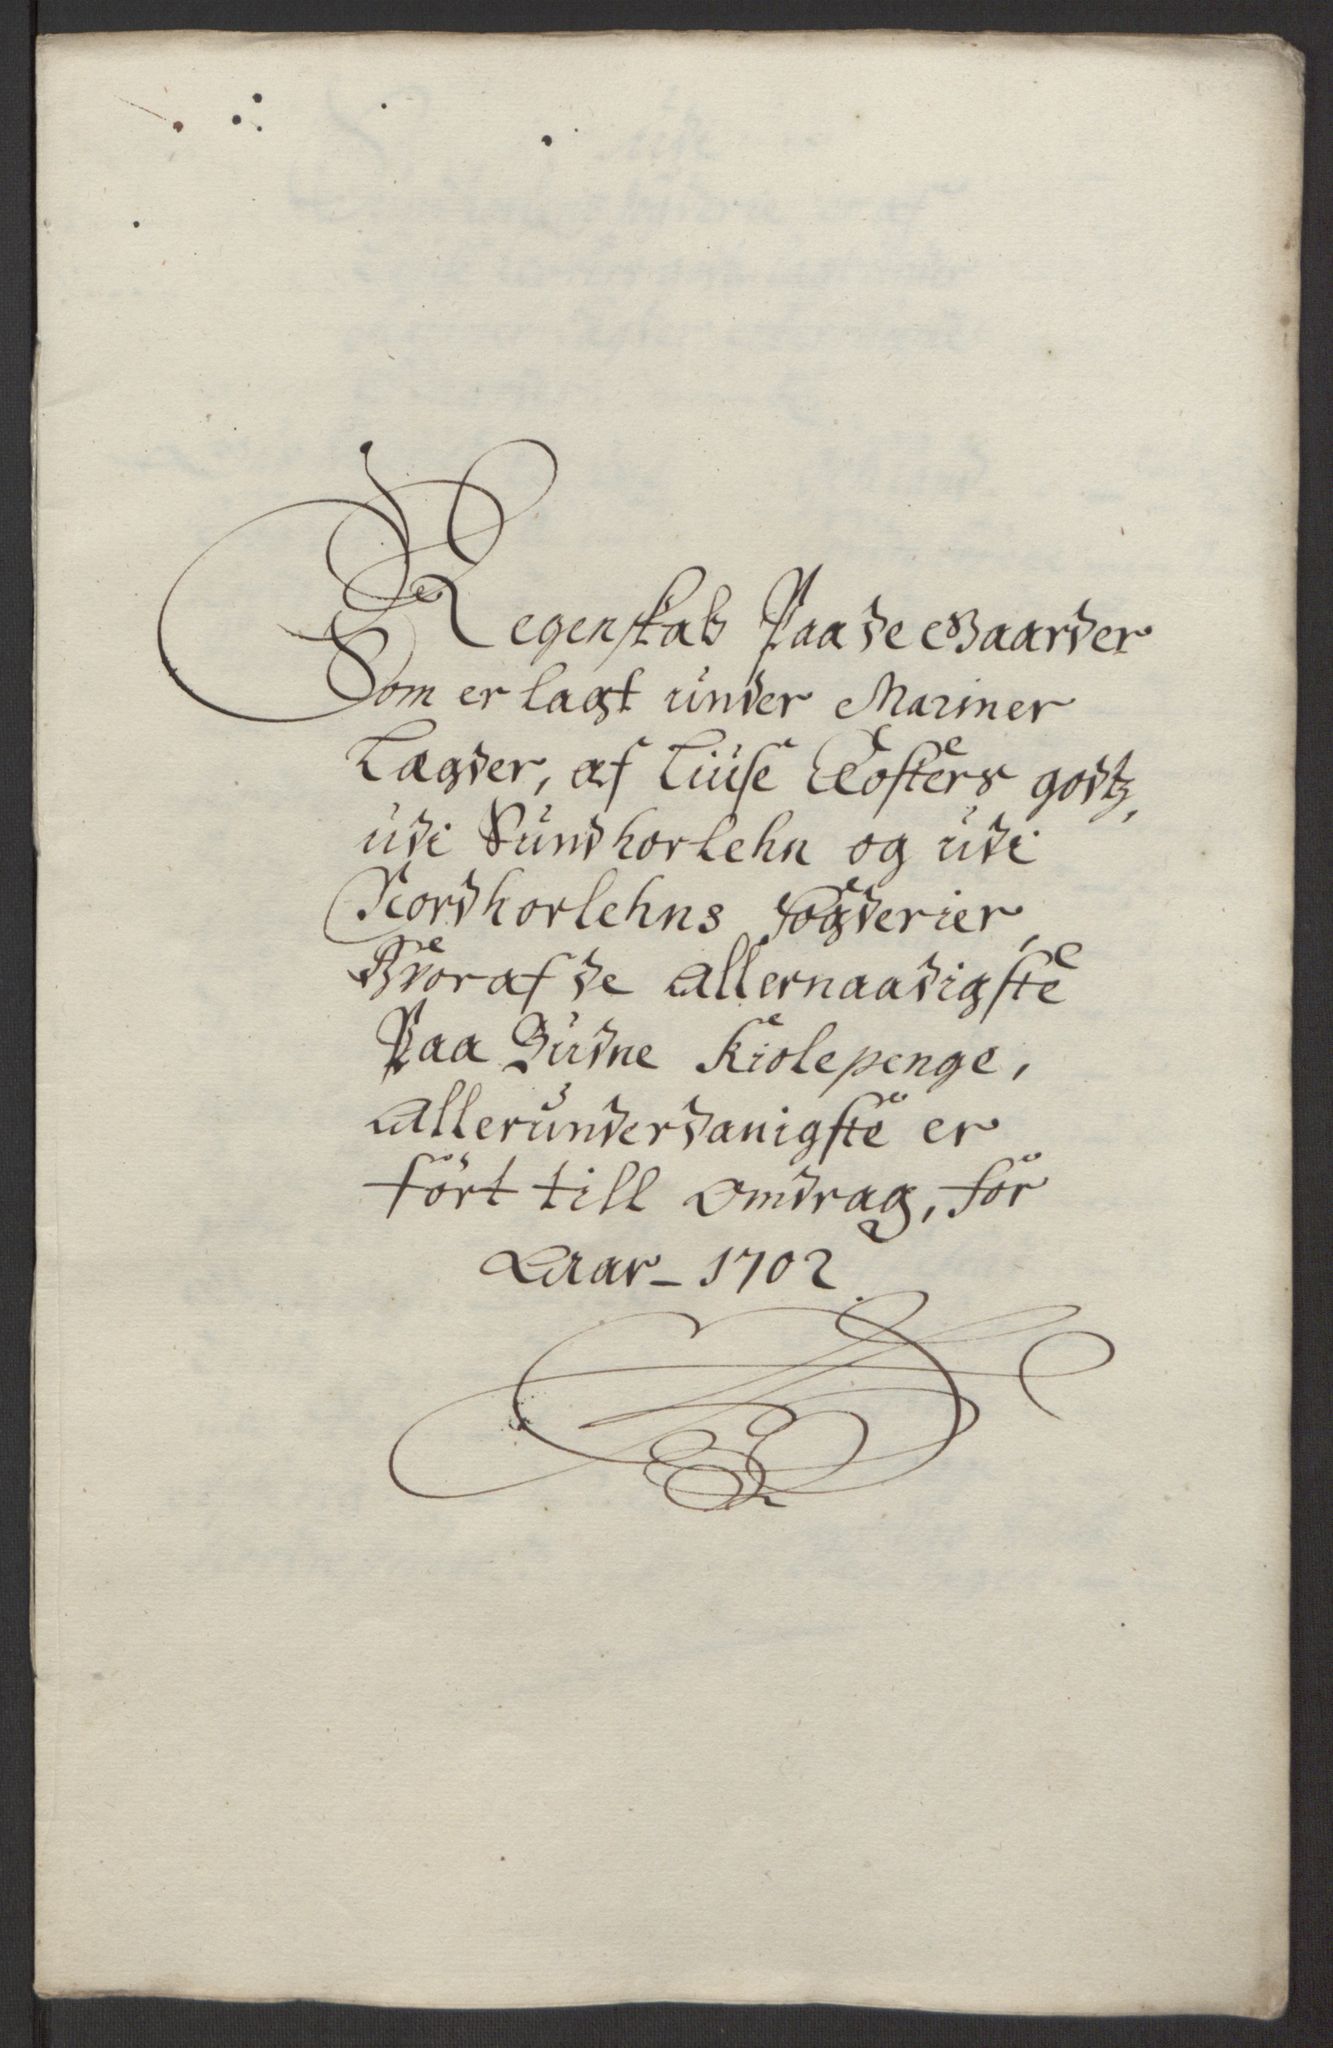 Regenskab Paa de Gaarder
Som er lagt under Mariner
Lægder, af Liuse Closters godtz,
udi Sundhorlehn og udi
Nordhorlehns fogderier,
Hvoraf de Allernaadigste
Paa Budne Kiolepenge,
Allerunderdanigste er
ført till Omdrag, for
Aar 1702